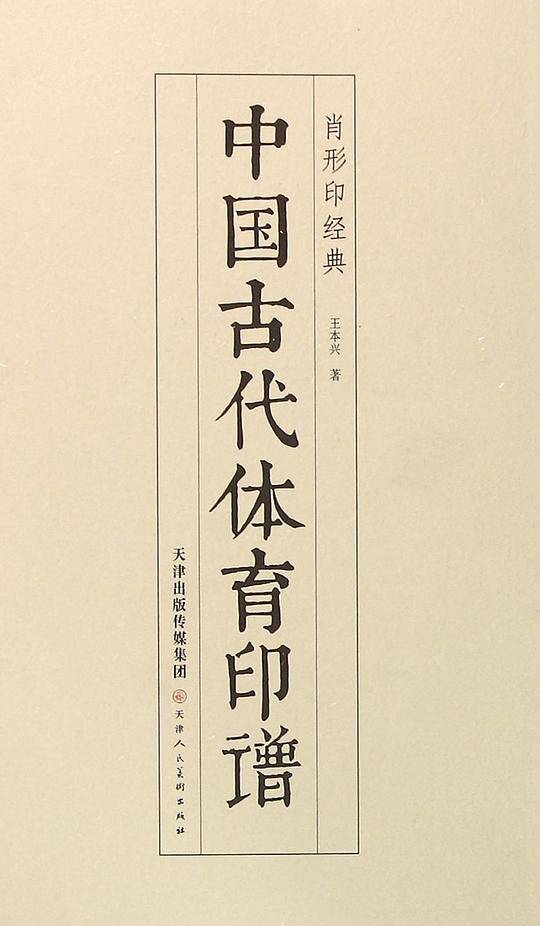 肖形印经典
王本兴 著
中国古代体育印谱
天津出版传媒集团
天津人民美术出版社